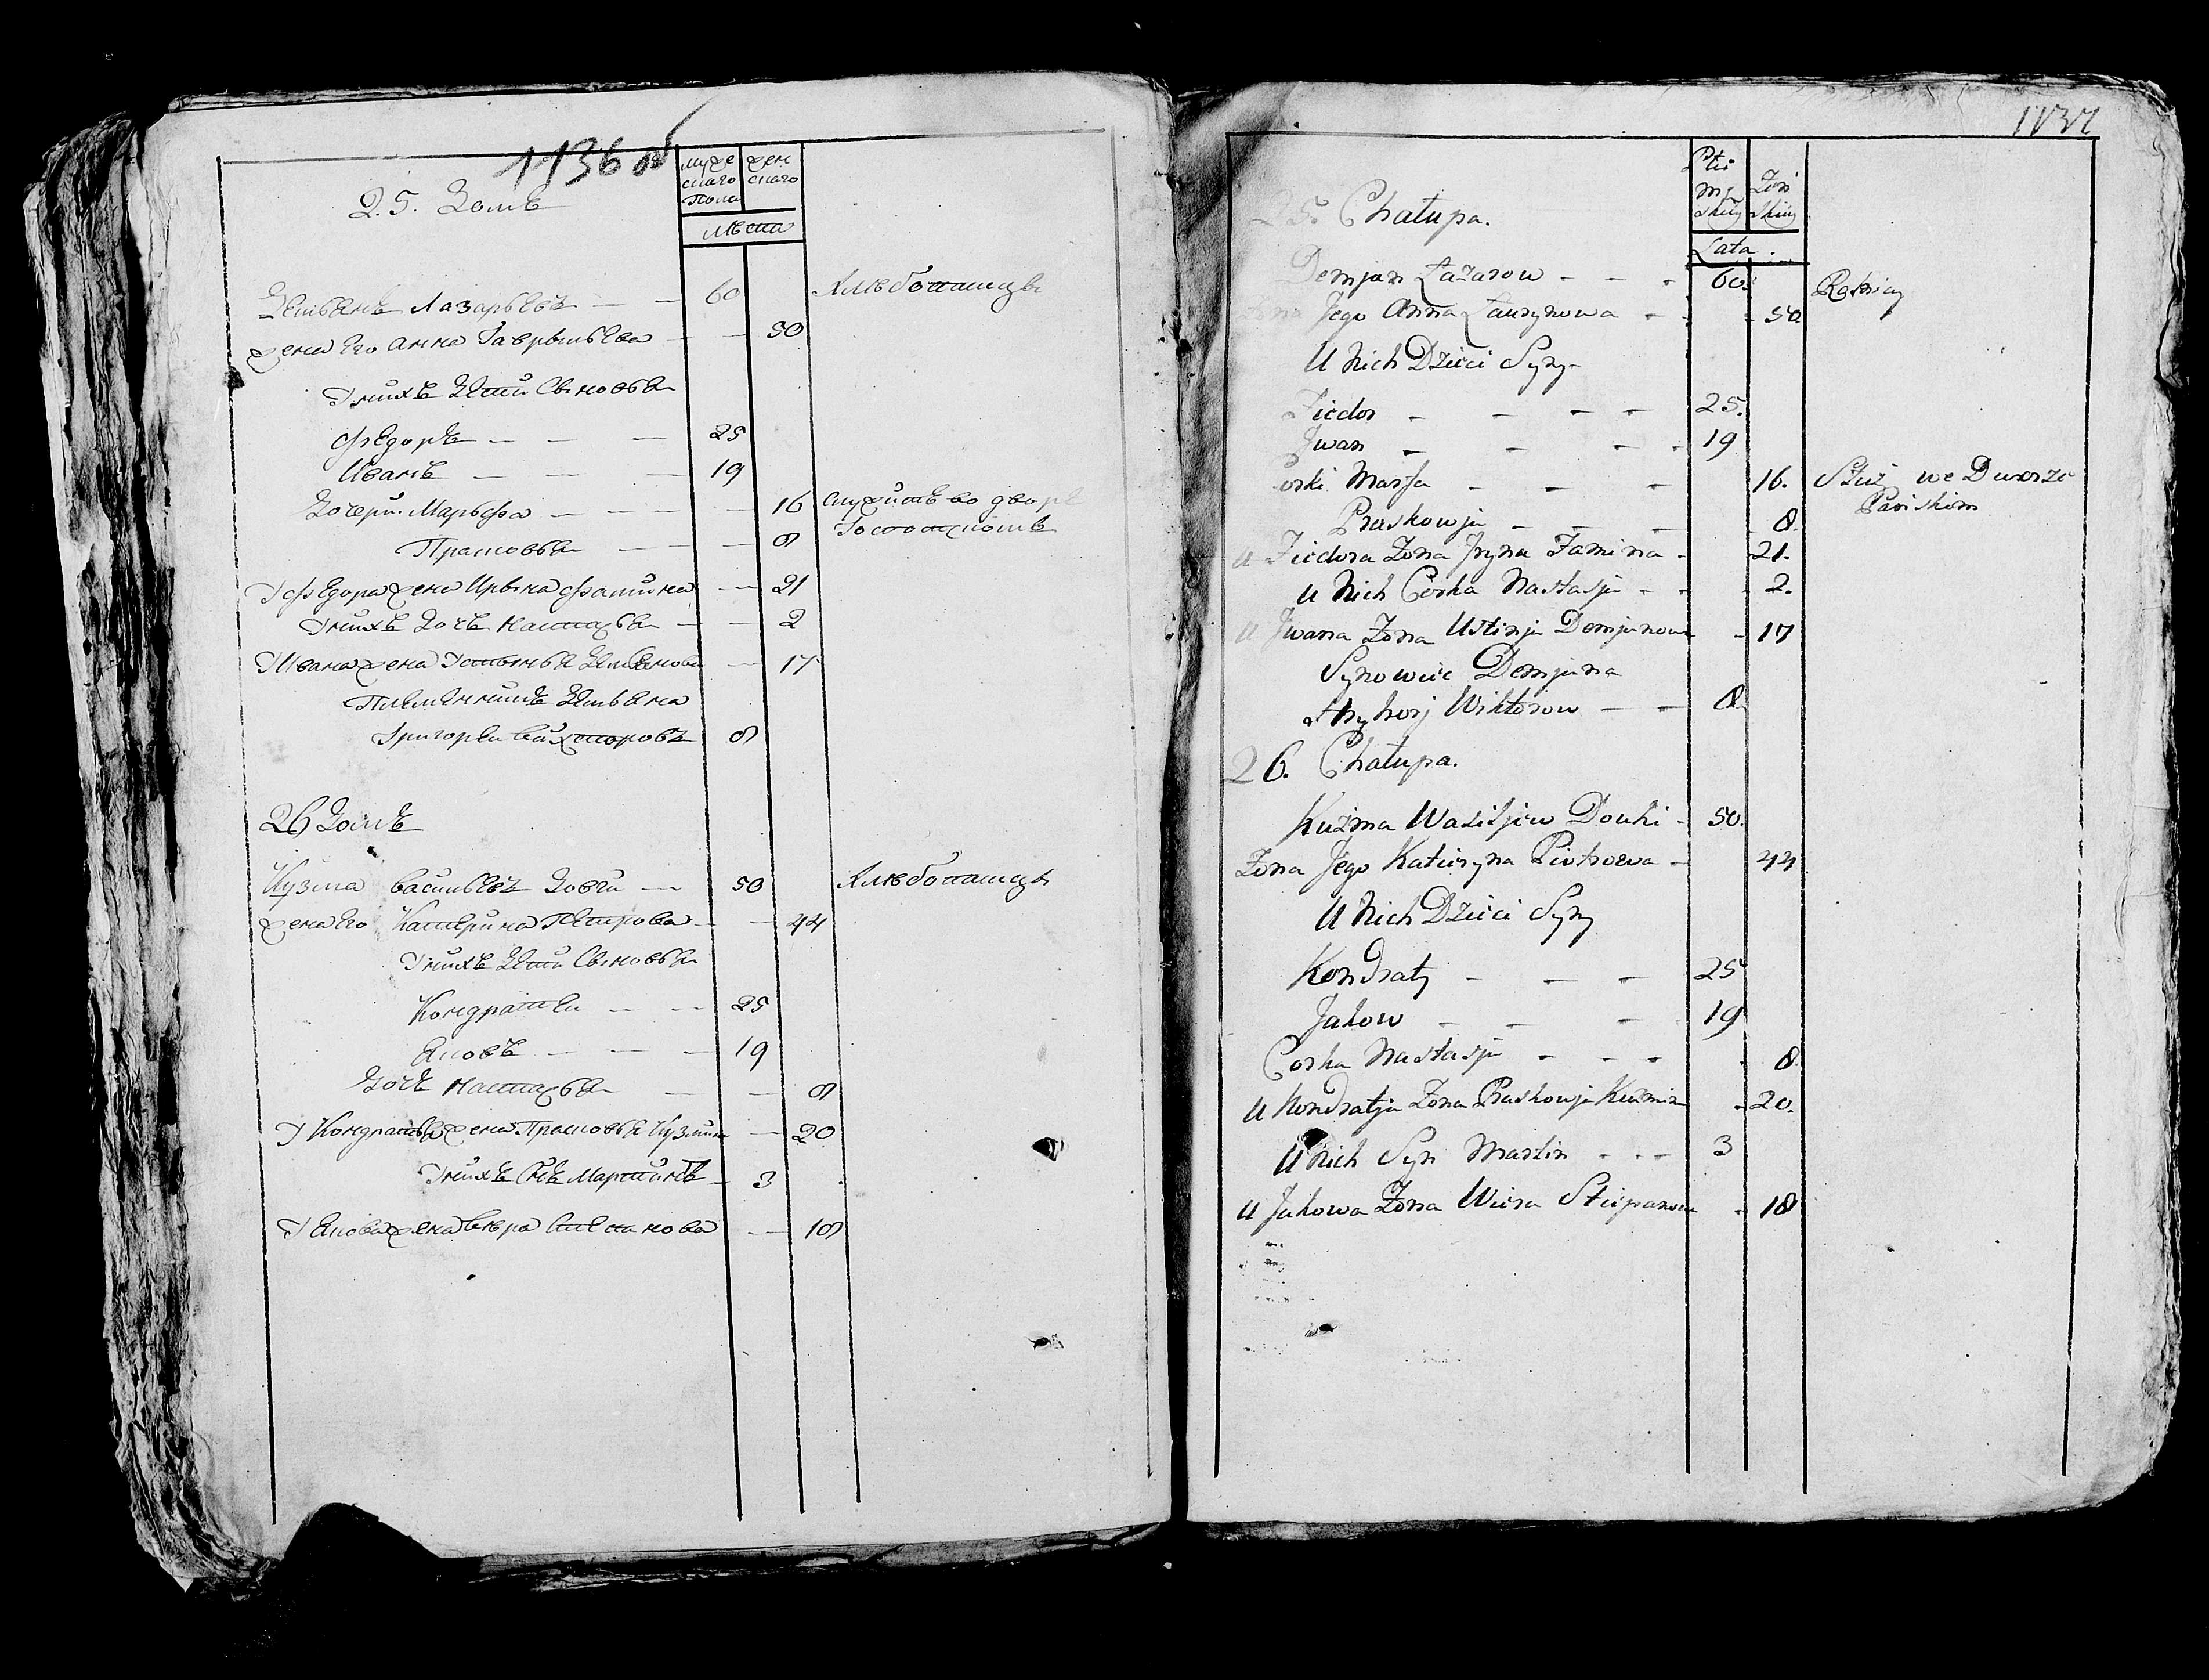 1136 об
муже
скаго
пола
жен
скаго
лѣта
25. Домъ
Демьянъ Лазарьевъ — — 60 Хлѣбопашецъ
жена Его Анна Гаврыльева — — 50
У нихъ Дѣти Сыновья
Федоръ — — — 25
Иванъ — — — 19
Дочери Марьфа — — — — 16 служитъ во дворѣ
Прасковья — — — 8 Господскомъ
У Федора жена Ирына Фамина — 21
У нихъ Дочь Настасья — — 2
У Ивана жена Устинья Демьянова — 17
Племянникъ Демьяна
Григорей Вихторовъ 8
26 Домъ
Кузма Васильевъ Довги — 50 Хлѣбопашецъ
жена Его Катерина Петрова — — 44
У нихъ Дѣти Сыновья
Кондратей — — — 25
Яковъ — — — 19
Дочь Настасья — — 8
У Кондратья жена Прасковья Кузмина — 20
У нихъ Сынъ Мартинъ — 3
У Якова жена Вѣра Степанова — — 18
1137
Płci
Mę
skiey
Żeń
skiey
Lata
25. Chałupa.
Demjan Łazarow - - - 60. Rolniczy
Żona Jego Anna Ławrynowa - - 50
U Nich Dzieci Syny
Fiedor - - - - 25.
Jwan - - - - 19
Córki Marfa - - - 16. Służy we Dworze
Praskowja - - - 8. Pańskim
U Fiedora Żona Jryna Famina - 21.
U Nich Corka Nastasja - - - 2.
U Jwana Żona Ustinja Demjanowa - 17
Synowiec Demjana
Hryhorj Wiktorow - - 8
26. Chałupa.
Kuźma Wasiljew Douhi - 50.
Żona Jego Katerzyna Piotrowa - 44
U Nich Dzieci Syny
Kondraty - - - 25
Jakow - - - 19
Corka Nastasja - - - - 8.
U Kondratja Żona Praskowja Kuźmina - 20.
U Nich Syn Martin - - - 3
U Jakowa Żona Wiera Stiepanowa - 18